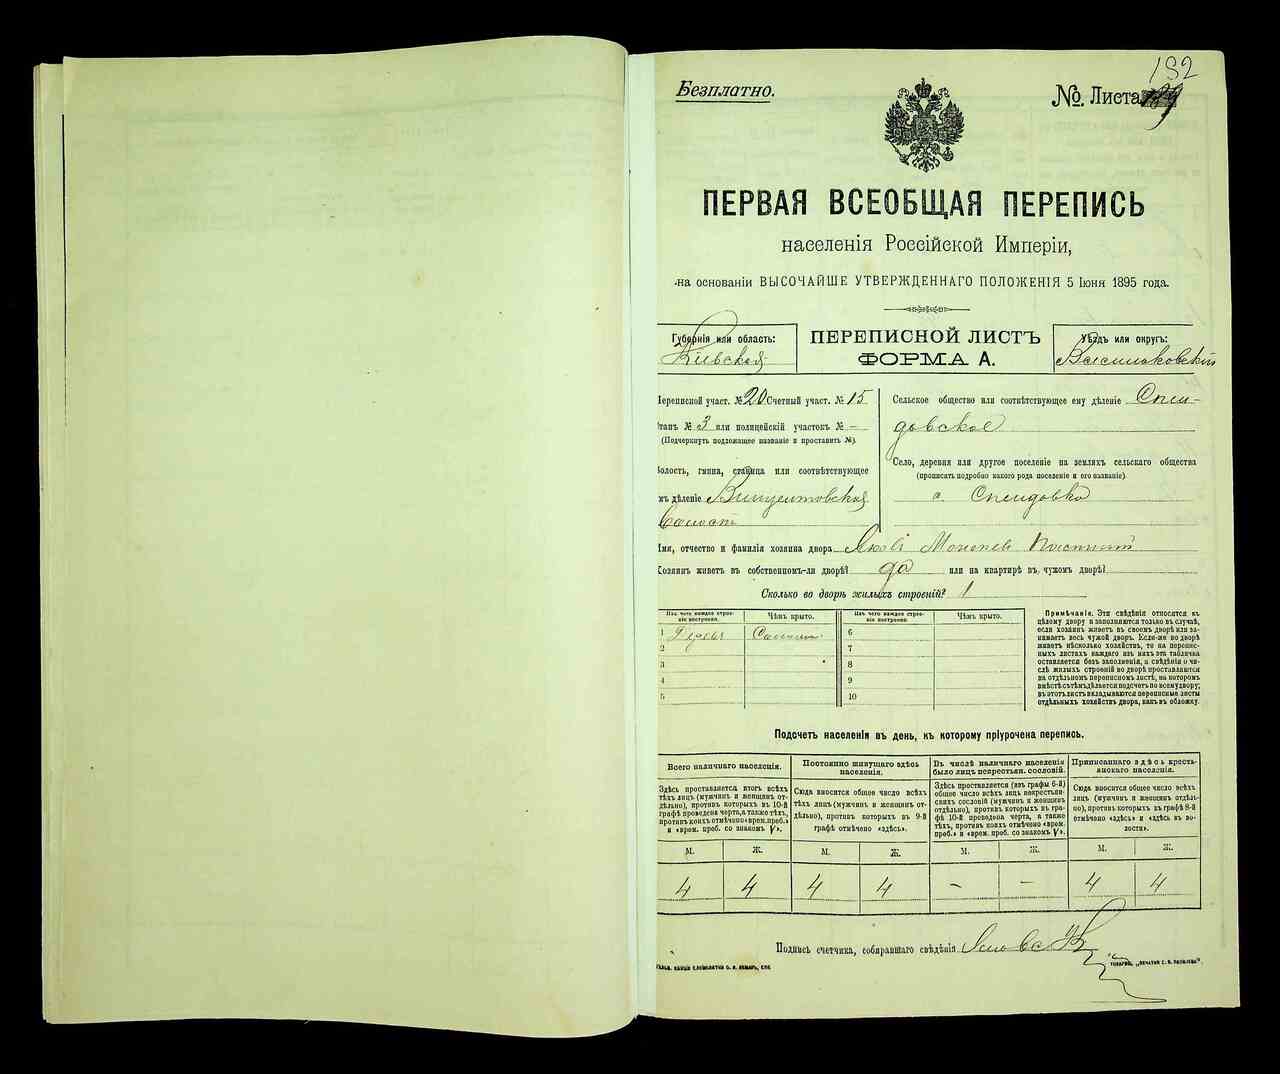 192
Безплатно.
№ Листа
ПЕРВАЯ ВСЕОБЩАЯ ПЕРЕПИСЬ
населенія Россійской Имперіи,
на основаніи ВЫСОЧАЙШЕ УТВЕРЖДЕННАГО ПОЛОЖЕНІЯ 5 Іюня 1895 года.
Губернія или область:
Кіевская
ПЕРЕПИСНОЙ ЛИСТЪ
ФОРМА А.
Уѣздъ или округъ:
Васильковскій
Переписной участ. № 20 Счетный участ. № 15
Станъ № 3 или полицейскій участокъ № —
(Подчеркнуть подлежащее названіе и проставить №).
Волость, гмина, станица или соотвѣтствующее
имъ дѣленіе Винцентовская
Волость
Сельское общество или соотвѣтствующее ему дѣленіе
довское
Село, деревня или другое поселеніе на земляхъ сельскаго общества
(прописать подробно какого рода поселеніе и его названіе).
с.
Имя, отчество и фамилія хозяина двора
Хозяинъ живетъ въ собственномъ-ли дворѣ? да или на квартирѣ въ чужомъ дворѣ?
Сколько во дворѣ жилыхъ строеній? 1
Изъ чего каждое строеніе построено. Чѣмъ крыто. Изъ чего каждое строеніе построено. Чѣмъ крыто.
1 6
2 7
3 8
4 9
5 10
Примѣчаніе. Эти свѣдѣнія относятся къ
цѣлому двору и заполняются только въ случаѣ,
если хозяинъ живетъ въ своемъ дворѣ или за-
нимаетъ весь чужой дворъ. Если-же во дворѣ
живетъ нѣсколько хозяйствъ, то на перепис-
ныхъ листахъ каждаго изъ нихъ эта табличка
оставляется безъ заполненія, а свѣдѣнія о чи-
слѣ жилыхъ строеній во дворѣ проставляются
на отдѣльномъ переписномъ листѣ, на которомъ
вмѣстѣ съ тѣмъ дѣлается подсчетъ по всему двору;
въ этотъ листъ вкладываются переписные листы
отдѣльныхъ хозяйствъ двора, какъ въ обложку.
Подсчетъ населенія въ день, къ которому пріурочена перепись.
Всего наличнаго населенія.
Здѣсь проставляется итогъ всѣхъ
тѣхъ лицъ (мужчинъ и женщинъ от-
дѣльно), противъ которыхъ въ 10-й
графѣ проведена черта, а также тѣхъ,
противъ коихъ отмѣчено «врем. преб.»
и «врем. преб. со знакомъ V».
Постоянно живущаго здѣсь
населенія.
Сюда вносится общее число всѣхъ
тѣхъ лицъ (мужчинъ и женщинъ от-
дѣльно), противъ которыхъ въ 9-й
графѣ отмѣчено «здѣсь».
Въ числѣ наличнаго населенія
было лицъ некрестьян. сословій.
Здѣсь проставляется (изъ графы 6-й)
общее число всѣхъ лицъ некрестьян-
скихъ сословій (мужчинъ и женщинъ
отдѣльно), противъ которыхъ въ гра-
фѣ 10-й проведена черта, а также
тѣхъ, противъ коихъ отмѣчено «врем.
преб.» и «врем. преб. со знакомъ V».
Приписаннаго здѣсь кресть-
янскаго населенія.
Сюда вносится общее число всѣхъ
лицъ (мужчинъ и женщинъ отдѣль-
но), противъ которыхъ въ графѣ 8-й
отмѣчено «здѣсь» и «здѣсь въ во-
лости».
М. Ж. М. Ж. М. Ж. М. Ж.
4 4 4 4 — — 4 4
Подпись счетчика, собиравшаго свѣдѣнія